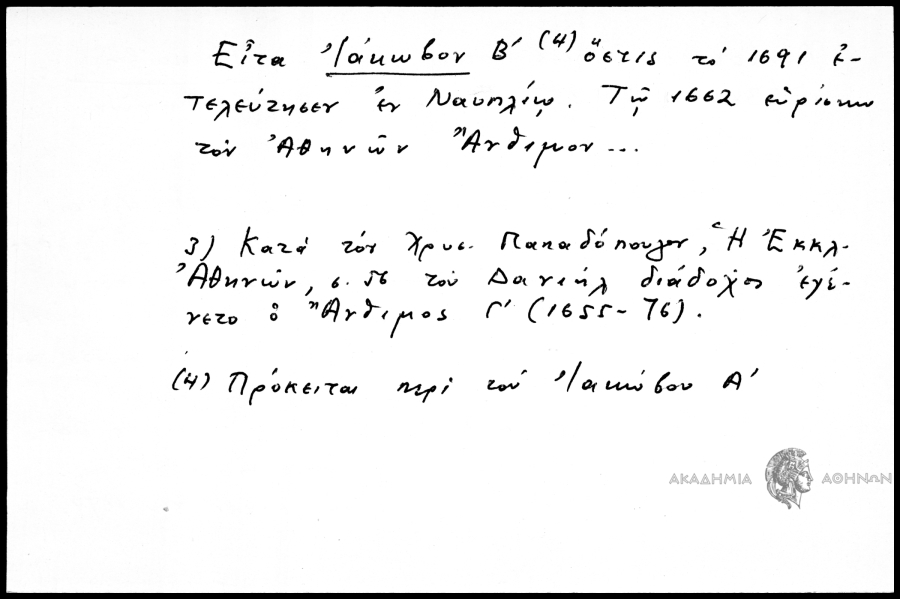 Εἶτα Ἰάκωβον Β' (4) ὅστις τό 1691 ἐ-
τελεύτησεν ἐν Ναυπλίῳ. Τῷ 1662 εὑρίσκω
τόν Ἀθηνῶν Ἄνθιμον...
3) Κατά τόν Χρυσ. Παπαδόπουλον, Ἡ Ἐκκλ.
Ἀθηνῶν, σ. 56 τοῦ Δανιήλ διάδοχος ἐγέ-
νετο ὁ Ἄνθιμος Γ' (1655-76).
(4) Πρόκειται περί τοῦ Ἰακώβου Α'
ΑΚΑΔΗΜΙΑ ΑΘΗΝΩΝ